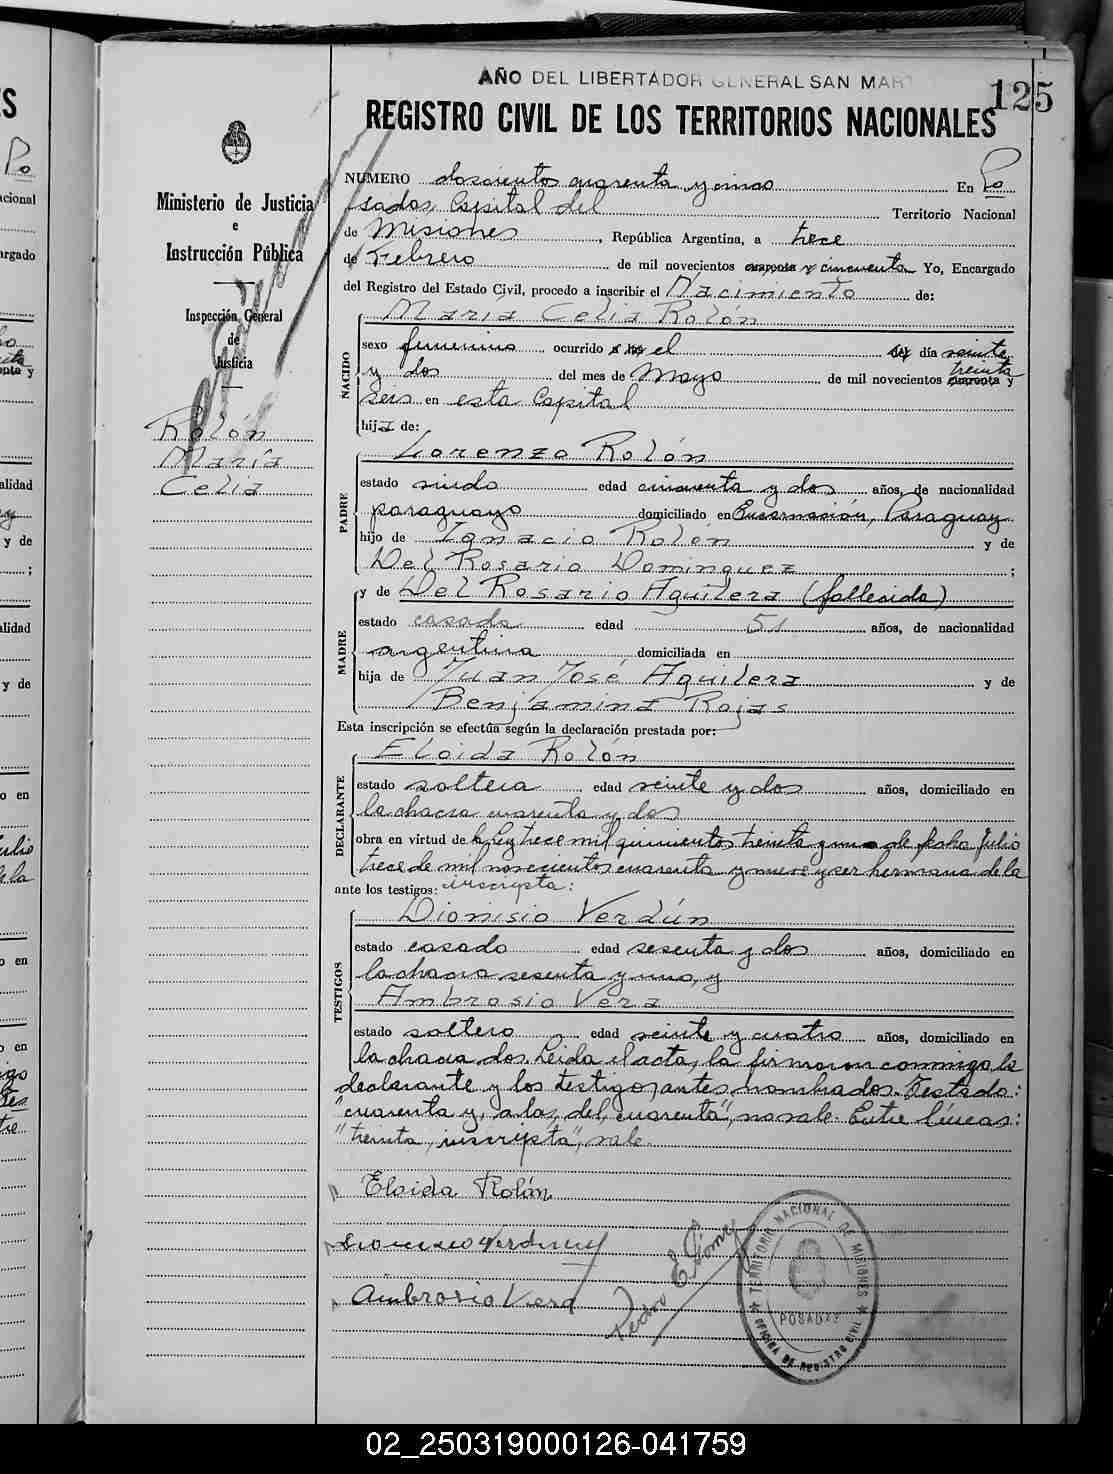 AÑO DEL LIBERTADOR GENERAL SAN MART
125
REGISTRO CIVIL DE LOS TERRITORIOS NACIONALES
Ministerio de Justicia
e
Instrucción Pública
Inspección General
de
Justicia
Rolón
María
Celia
NUMERO doscientos cuarenta y cinco En Po
sadas, Capital del Territorio Nacional
de Misiones, República Argentina, a trece
de Febrero de mil novecientos cuarenta y cincuenta Yo, Encargado
del Registro del Estado Civil, procedo a inscribir el Nacimiento de:
NACIDO
María Celia Rolón
sexo femenino ocurrido a las el del día veinte
y dos del mes de Mayo de mil novecientos cuarenta y
treinta
seis en esta Capital
hija de:
PADRE
Lorenzo Rolón
estado viudo edad cincuenta y dos años, de nacionalidad
paraguayo domiciliado en Encarnación, Paraguay
hijo de Ignacio Rolón y de
Del Rosario Dominguez ;
MADRE
y de Del Rosario Aguilera (fallecida)
estado casada edad 51 años, de nacionalidad
argentina domiciliada en
hija de Juan José Aguilera y de
Benjamina Rojas
Esta inscripción se efectúa según la declaración prestada por:
DECLARANTE
Eloida Rolón
estado soltera edad veinte y dos años, domiciliado en
la chacra cuarenta y dos
obra en virtud de la Ley trece mil quinientos treinta y uno de fecha Julio
trece de mil novecientos cuarenta y nueve y ser hermana de la
ante los testigos: inscripta:
TESTIGOS
Dionisio Verdún
estado casado edad sesenta y dos años, domiciliado en
la chacra sesenta y uno, y
Ambrosio Vera
estado soltero edad veinte y cuatro años, domiciliado en
la chacra dos. Leida el acta, la firmaron conmigo la
declarante y los testigos antes nombrados. Testado:
"cuarenta y, a las, del, cuarenta", no vale. Entre líneas:
"treinta, inscripta", vale.
Eloida Rolón
Ambrosio Vera
Pedro E. Gómez
TERRITORIO NACIONAL DE MISIONES
POSADAS
OFICINA DE REGISTRO CIVIL
02_250319000126-041759